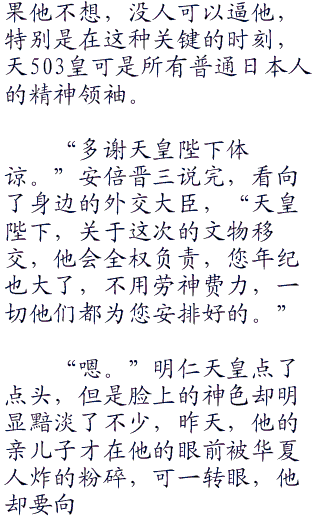 果他不想，没人可以逼他，
特别是在这种关键的时刻，
天503皇可是所有普通日本人
的精神领袖。
“多谢天皇陛下体
谅。”安倍晋三说完，看向
了身边的外交大臣，“天皇
陛下，关于这次的文物移
交，他会全权负责，您年纪
也大了，不用劳神费力，一
切他们都为您安排好的。”
“嗯。”明仁天皇点了
点头，但是脸上的神色却明
显黯淡了不少，昨天，他的
亲儿子才在他的眼前被华夏
人炸的粉碎，可一转眼，他
却要向